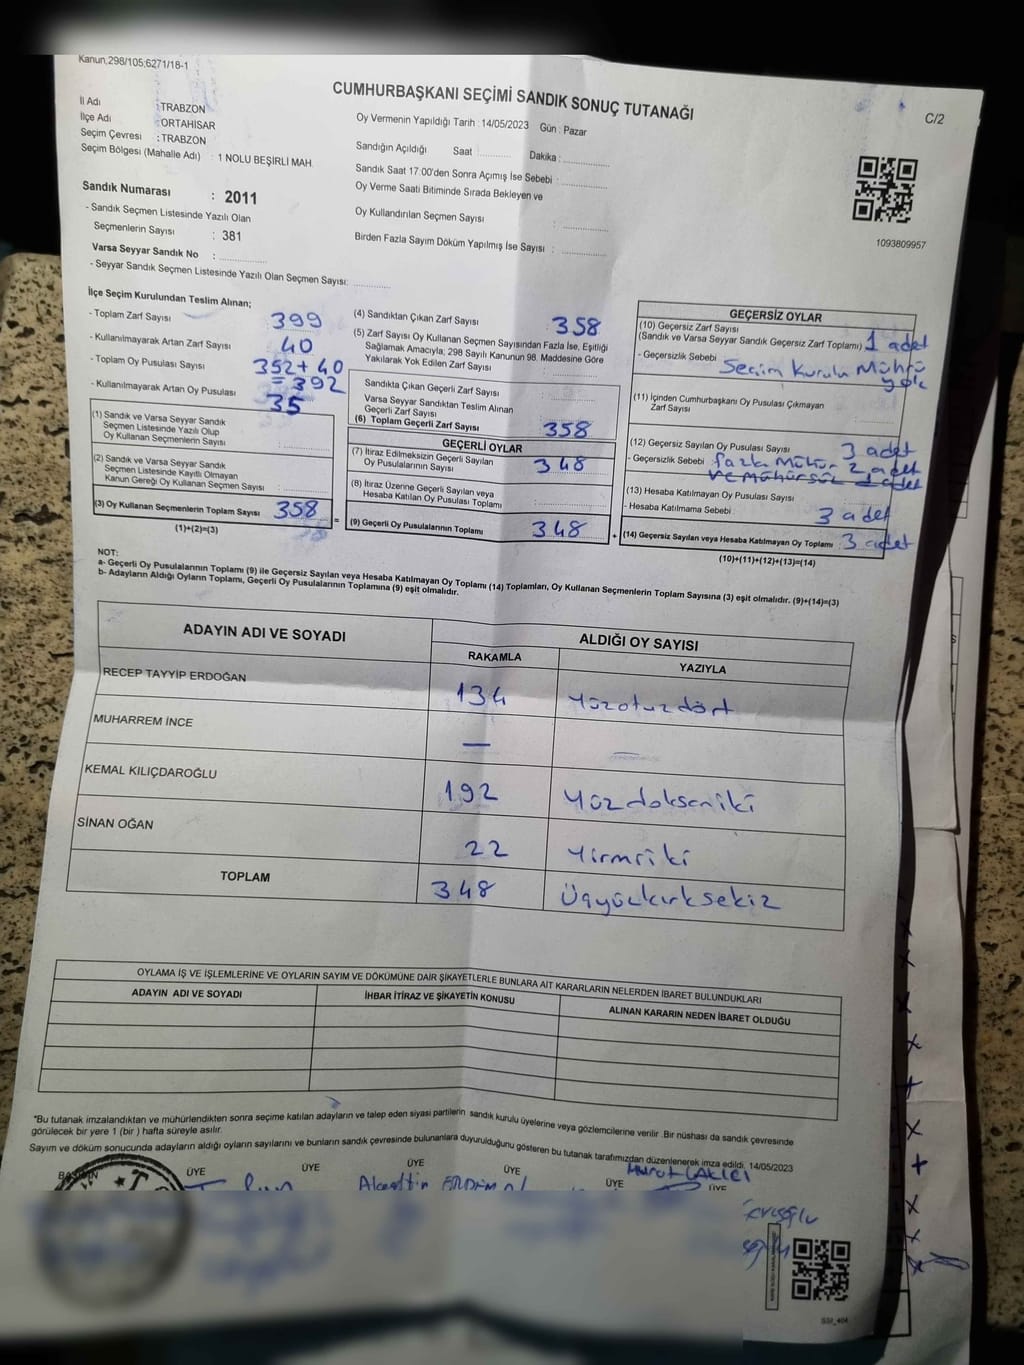 Kanun,298/105;6271/18-1
CUMHURBAŞKANI SEÇİMİ SANDIK SONUÇ TUTANAĞI
C/2
İl Adı : TRABZON
İlçe Adı : ORTAHİSAR
Seçim Çevresi : TRABZON
Seçim Bölgesi (Mahalle Adı) : 1 NOLU BEŞİRLİ MAH.
Oy Vermenin Yapıldığı Tarih : 14/05/2023 Gün : Pazar
Sandığın Açıldığı Saat Dakika :
Sandık Saat 17:00'den Sonra Açımış İse Sebebi :
Oy Verme Saati Bitiminde Sırada Bekleyen ve
Oy Kullandırılan Seçmen Sayısı :
Birden Fazla Sayım Döküm Yapılmış İse Sayısı :
1093809957
Sandık Numarası : 2011
- Sandık Seçmen Listesinde Yazılı Olan
Seçmenlerin Sayısı : 381
Varsa Seyyar Sandık No :
- Seyyar Sandık Seçmen Listesinde Yazılı Olan Seçmen Sayısı:
İlçe Seçim Kurulundan Teslim Alınan;
- Toplam Zarf Sayısı 399
- Kullanılmayarak Artan Zarf Sayısı 40
- Toplam Oy Pusulası Sayısı 352+40
=392
- Kullanılmayarak Artan Oy Pusulası 35
(1) Sandık ve Varsa Seyyar Sandık
Seçmen Listesinde Yazılı Olup
Oy Kullanan Seçmenlerin Sayısı :
(2) Sandık ve Varsa Seyyar Sandık
Seçmen Listesinde Kayıtlı Olmayan
Kanun Gereği Oy Kullanan Seçmen Sayısı :
(3) Oy Kullanan Seçmenlerin Toplam Sayısı 358
(1)+(2)=(3)
(4) Sandıktan Çıkan Zarf Sayısı 358
(5) Zarf Sayısı Oy Kullanan Seçmen Sayısından Fazla İse, Eşitliği
Sağlamak Amacıyla; 298 Sayılı Kanunun 98. Maddesine Göre
Yakılarak Yok Edilen Zarf Sayısı :
Sandıkta Çıkan Geçerli Zarf Sayısı :
Varsa Seyyar Sandıktan Teslim Alınan
Geçerli Zarf Sayısı :
(6) Toplam Geçerli Zarf Sayısı 358
GEÇERLİ OYLAR
(7) İtiraz Edilmeksizin Geçerli Sayılan
Oy Pusulalarının Sayısı 348
(8) İtiraz Üzerine Geçerli Sayılan veya
Hesaba Katılan Oy Pusulası Toplamı :
= (9) Geçerli Oy Pusulalarının Toplamı 348 +
GEÇERSİZ OYLAR
(10) Geçersiz Zarf Sayısı
(Sandık ve Varsa Seyyar Sandık Geçersiz Zarf Toplamı) 1 adet
- Geçersizlik Sebebi Seçim Kurulu Mührü
yok
(11) İçinden Cumhurbaşkanı Oy Pusulası Çıkmayan
Zarf Sayısı :
(12) Geçersiz Sayılan Oy Pusulası Sayısı 3 adet
- Geçersizlik Sebebi fazla Mühür 2 adet
ve mühürsüz 1 adet
(13) Hesaba Katılmayan Oy Pusulası Sayısı :
- Hesaba Katılmama Sebebi 3 adet
(14) Geçersiz Sayılan veya Hesaba Katılmayan Oy Toplamı 3 adet
(10)+(11)+(12)+(13)=(14)
NOT:
a- Geçerli Oy Pusulalarının Toplamı (9) ile Geçersiz Sayılan veya Hesaba Katılmayan Oy Toplamı (14) Toplamları, Oy Kullanan Seçmenlerin Toplam Sayısına (3) eşit olmalıdır. (9)+(14)=(3)
b- Adayların Aldığı Oyların Toplamı, Geçerli Oy Pusulalarının Toplamına (9) eşit olmalıdır.
ADAYIN ADI VE SOYADI ALDIĞI OY SAYISI
RAKAMLA YAZIYLA
RECEP TAYYİP ERDOĞAN 134 Yüzotuzdört
MUHARREM İNCE —
KEMAL KILIÇDAROĞLU 192 Yüzdokseniki
SİNAN OĞAN 22 Yirmiiki
TOPLAM 348 Üçyüzkırksekiz
OYLAMA İŞ VE İŞLEMLERİNE VE OYLARIN SAYIM VE DÖKÜMÜNE DAİR ŞİKAYETLERLE BUNLARA AİT KARARLARIN NELERDEN İBARET BULUNDUKLARI
ADAYIN ADI VE SOYADI İHBAR İTİRAZ VE ŞİKAYETİN KONUSU ALINAN KARARIN NEDEN İBARET OLDUĞU
*Bu tutanak imzalandıktan ve mühürlendikten sonra seçime katılan adayların ve talep eden siyasi partilerin sandık kurulu üyelerine veya gözlemcilerine verilir .Bir nüshası da sandık çevresinde
görülecek bir yere 1 (bir ) hafta süreyle asılır.
Sayım ve döküm sonucunda adayların aldığı oyların sayılarını ve bunların sandık çevresinde bulunanlara duyurulduğunu gösteren bu tutanak tarafımızdan düzenlenerek imza edildi. 14/05/2023
BAŞKAN ÜYE ÜYE ÜYE ÜYE ÜYE ÜYE